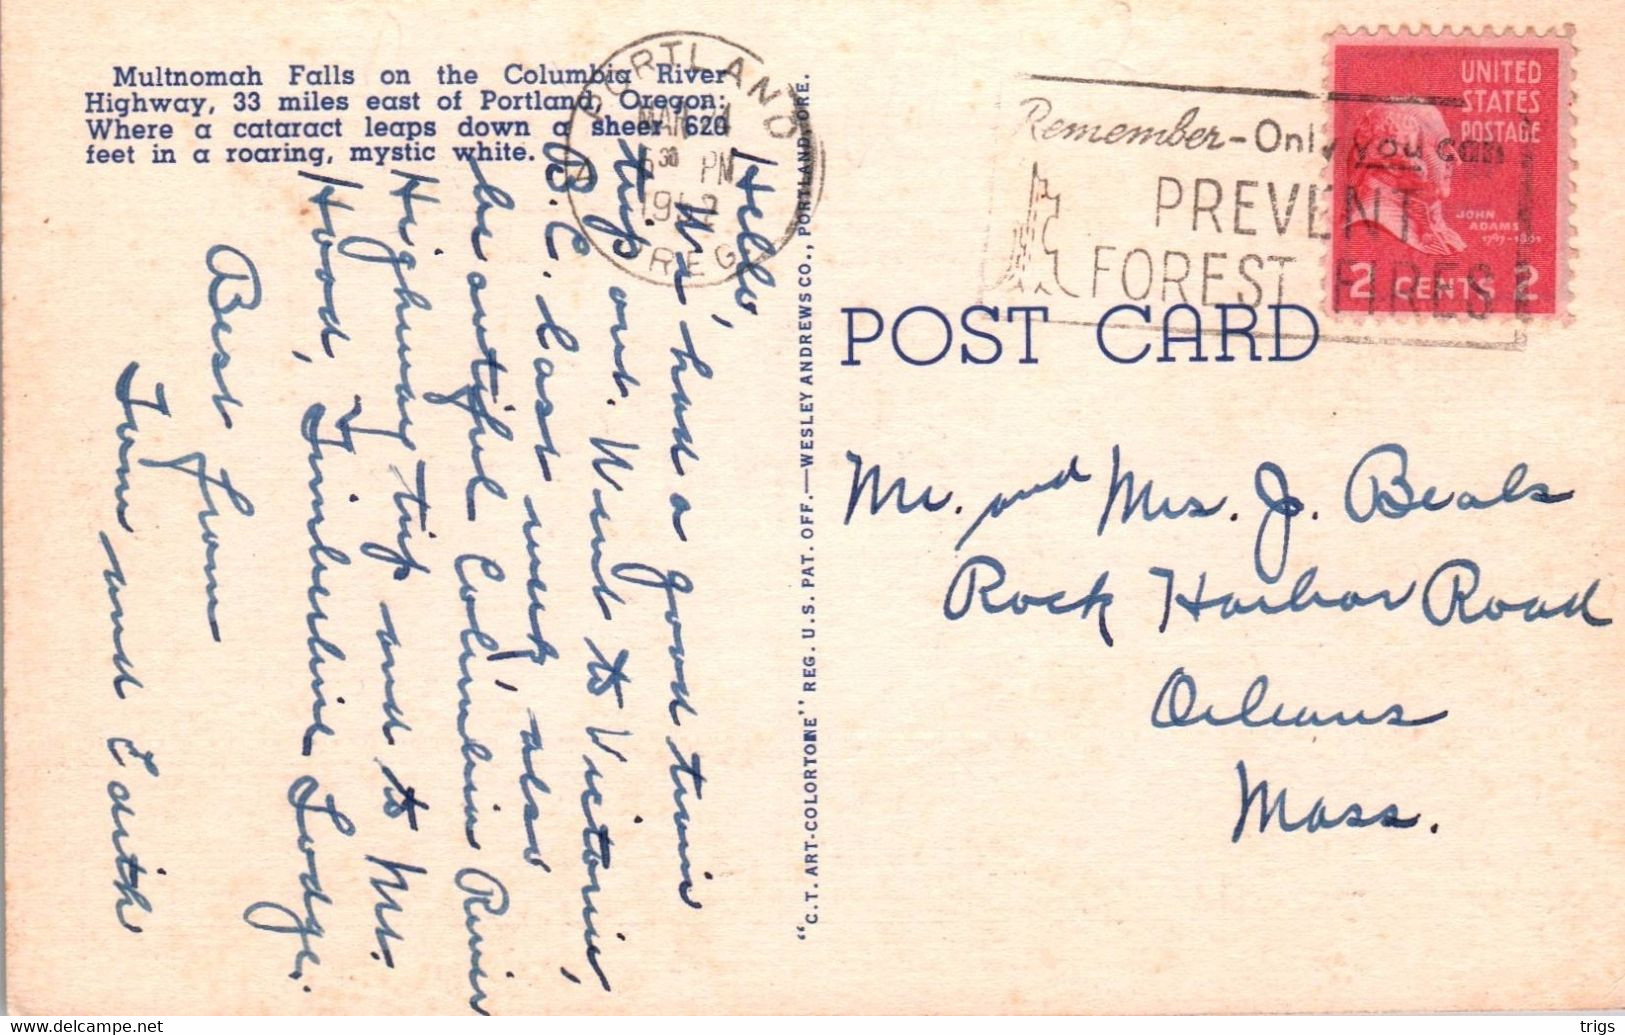 Multnomah Falls on the Columbia River
Highway, 33 miles east of Portland, Oregon:
Where a cataract leaps down a sheer 620
feet in a roaring, mystic white.
PORTLAND
MAR
30 PM
OREG
Remember - Only you can
PREVENT
FOREST FIRES
UNITED
STATES
POSTAGE
JOHN
ADAMS
1797-1801
2 CENTS 2
POST CARD
"C.T. ART-COLORTONE" REG. U.S. PAT. OFF.—WESLEY ANDREWS CO., PORTLAND, ORE.
Hello,
We had a good train
trip out. Went to Victoria,
B.C. last week, also
beautiful Columbia River
Highway trip and to Mt.
Hood, Timberline Lodge.
Best from
Tom and Edith
Mr. and Mrs. J. Beals
Rock Harbor Road
Orleans
Mass.
delcampe.net
trigs